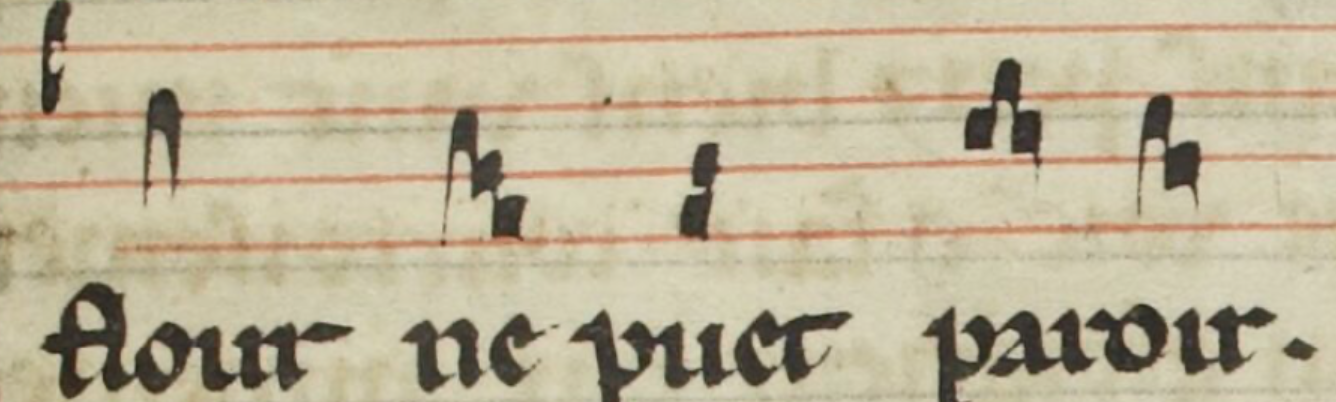 flour ne puet paroir.